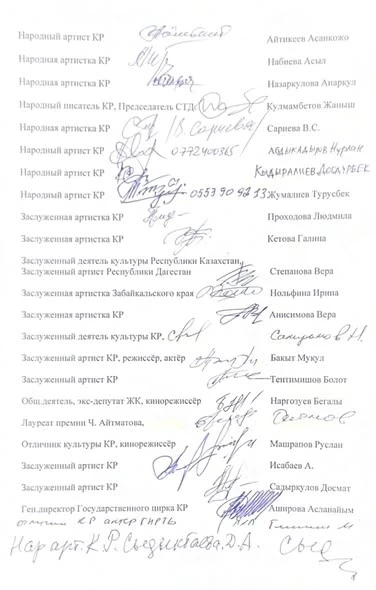 Народный артист КР Айтикеев Асанкожо
Народная артистка КР Набиева Асыл
Народная артистка КР Назаркулова Анаркул
Народный писатель КР, Председатель СТД Кулмамбетов Жаныш
Народная артистка КР В. Сариева Сариева В.С.
Народный артист КР 0772400365 Абдыкадыров Нурлан
Народный артист КР Кыдыралиев Досурбек
Народный артист КР 0553 90 92 13 Жумалиев Турусбек
Заслуженная артистка КР Проходова Людмила
Заслуженная артистка КР Кетова Галина
Заслуженный деятель культуры Республики Казахстан,
Заслуженный артист Республики Дагестан Степанова Вера
Заслуженная артистка Забайкальского края Нольфина Ирина
Заслуженная артистка КР Анисимова Вера
Заслуженный деятель культуры КР,
Заслуженный артист КР, режиссёр, актёр Бакыт Мукул
Заслуженный артист КР Тентимишов Болот
Общ.деятель, экс-депутат ЖК, кинорежиссёр Наргозуев Бегалы
Лауреат премии Ч. Айтматова,
Отличник культуры КР, кинорежиссёр Машрапов Руслан
Заслуженный артист КР Исабаев А.
Заслуженный артист КР Садыркулов Досмат
Ген.директор Государственного цирка КР Аширова Асланайым
отличник КР актер
Нар арт. К.Р. Сыдыкбаева. Д.А.